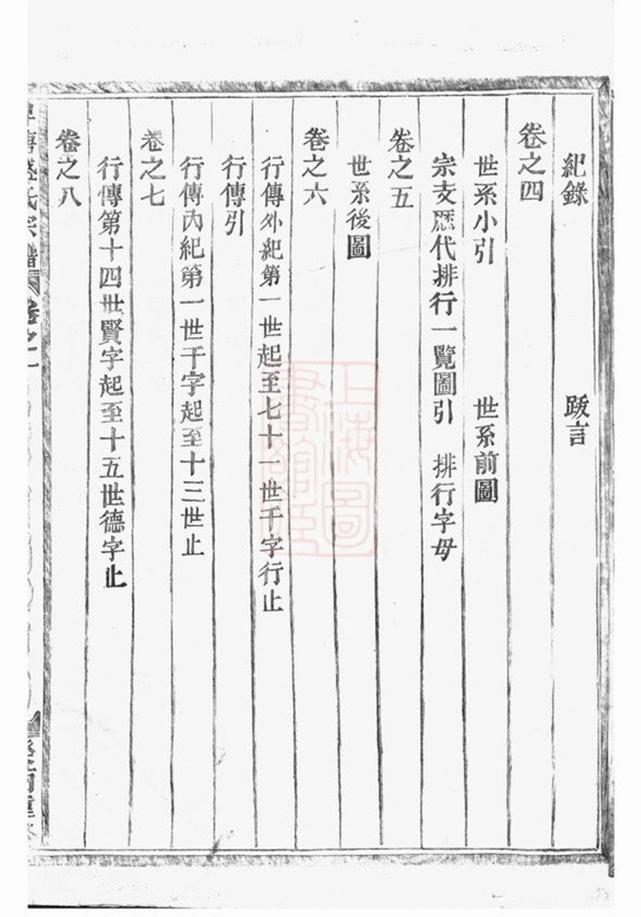 紀錄　跋言
卷之四
世系小引　世系前圖
宗支歷代排行一覽圖引　排行字母
卷之五
世系後圖
卷之六
行傳外紀第一世起至七十一世千字行止
行傳引
行傳內紀第一世千字起至十三世止
卷之七
行傳第十四世賢字起至十五世德字止
卷之八
氏宗譜
卷之一
上海圖書館藏